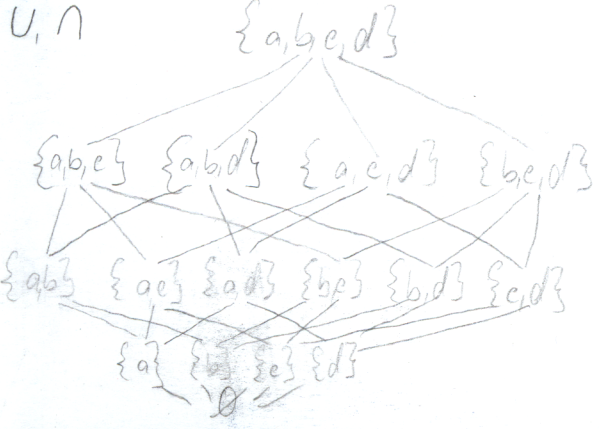 ∪, ∩
{a,b,c,d}
{a,b,c} {a,b,d} {a,c,d} {b,c,d}
{a,b} {a,c} {a,d} {b,c} {b,d} {c,d}
{a} {b} {c} {d}
∅